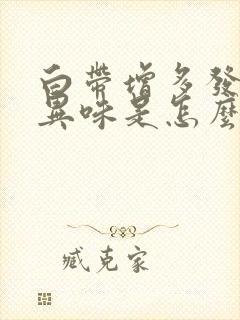 白帶增多發
異味是怎麼
臧克家